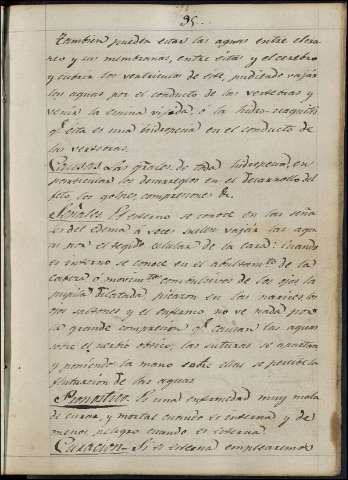 95.
También pueden estar las aguas entre el crá-
neo y sus membranas, entre éstas y el cerebro
y cubrir los ventrículos de éste, pudiendo vajár
las aguas por el conducto de las verteuras y
venir la esvina vifada, ó la hidro-raquitis
qe. ésta es una hidropesía en el conducto de
las verteuras.
Causas. Las grales. de toda hidropesía, en
particular los desarreglos en el desarrollo del
feto, los golpes, compresiones &.
Señales. El esterno se conoce en las seña-
les del edema á veces suelen vajár las agu-
as por el tegido celular de la cara: cuando
es interno se conoce en el abultamto. de la
cabeza ó movimtos. combulsivos de los ojos la
pupila dilatada, picazon en las narices, los
ojos saltones y el enfermo no ve nada por
la grande compresion qe. causan las aguas
sobre el nerbio obtico; las suturas se apartan
y poniendo la mano sobre ellas se percibe la
flutuacion de las aguas
Pronostico. Es una enfermedad muy mala
de curar, y mortal cuando es interna y de
menos peligro cuando es esterna.
Curacion.- Si es esterna emplearemos